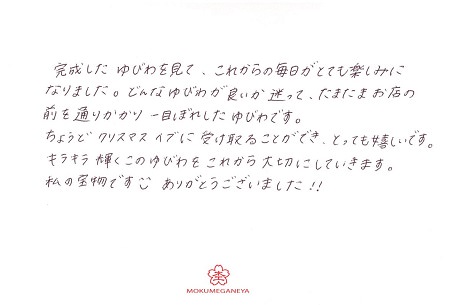 完成した ゆびわを見て、これからの毎日がとても楽しみに
なりました。どんなゆびわが良いか迷って、たまたまお店の
前を通りかかり 一目ぼれしたゆびわです。
ちょうど クリスマス イブに 受け取ることができ、とっても嬉しいです。
キラキラ 輝くこのゆびわを これから 大切にしていきます。
私の宝物です ありがとうございました!!
杢
MOKUMEGANEYA